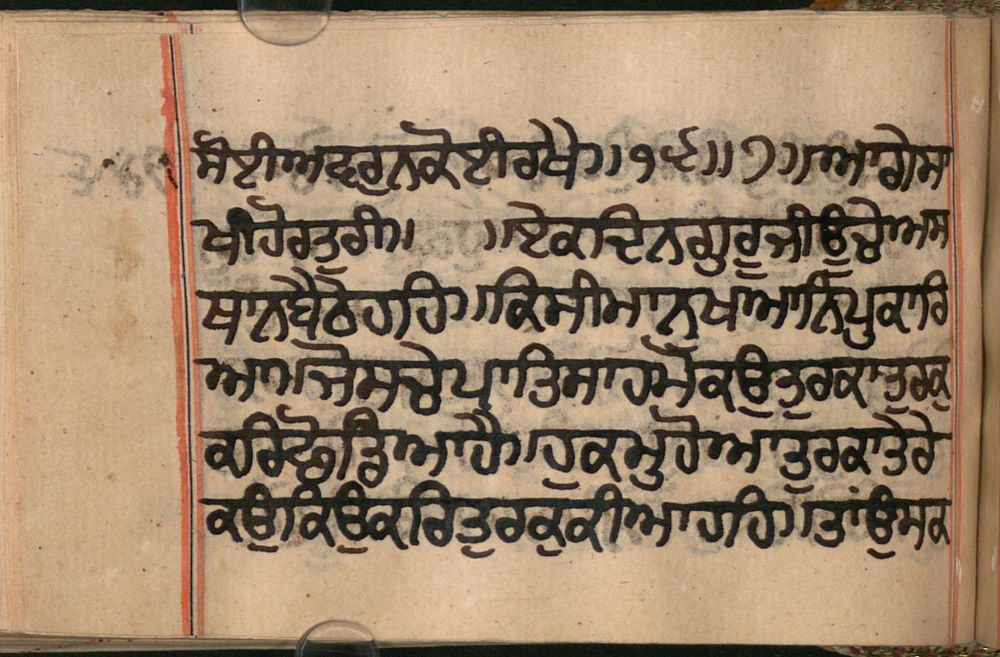 ਸੋਈਅਵਰੁਨਕੋਈਰਖੈ॥੧੯॥੭॥ਅਾਗੇਸਾ
ਖੀਹੋਰਤੁਰੀ॥ ॥ਏਕਦਿਨਗੁਰੂਜੀਊਚੇਅਸ
ਥਾਨਬੈਠੇਹਹਿ॥ਕਿਸੀਮਾਨੁਖਆਨਿਪੁਕਾਰਿ
ਆਜੋਸਚੇਪਾਤਿਸਾਹਮੋਕਉਤੁਰਕਾਤੁਰਕੁ
ਕਰਿਛੋਡਿਆਹੈ॥ਹੁਕਮੁਹੋਆਤੁਰਕਾਤੇਰੇ
ਕਉਕਿਉਕਰਿਤੁਰਕੁਕੀਆਹਹਿ॥ਤਾਂਉਸਕ